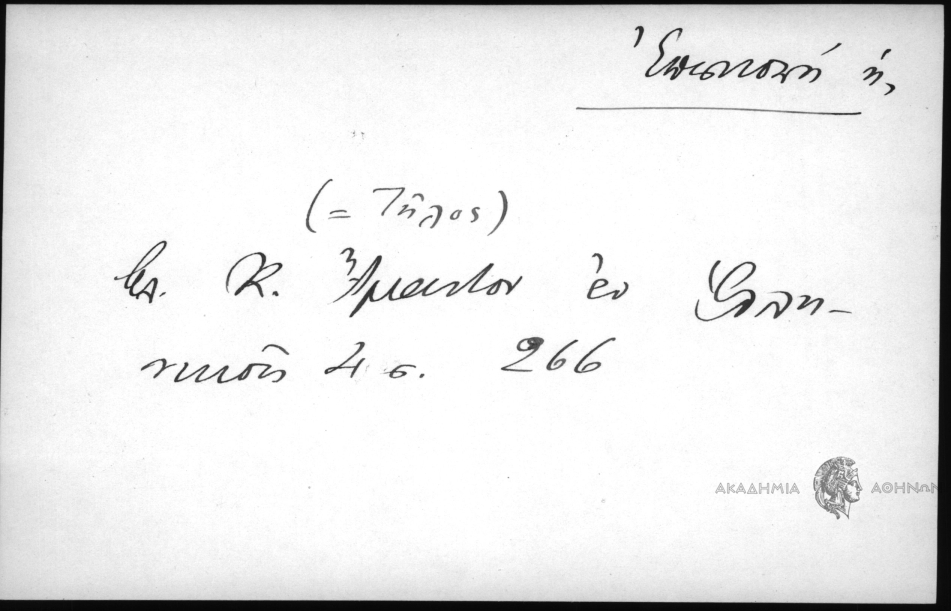 Ἐπισκοπή ἡ,
(= Τῆλος)
βλ. Κ. Ἄμαντον ἐν Ἑλλη-
νικοῖς 4 σ. 266
ΑΚΑΔΗΜΙΑ ΑΘΗΝΩΝ